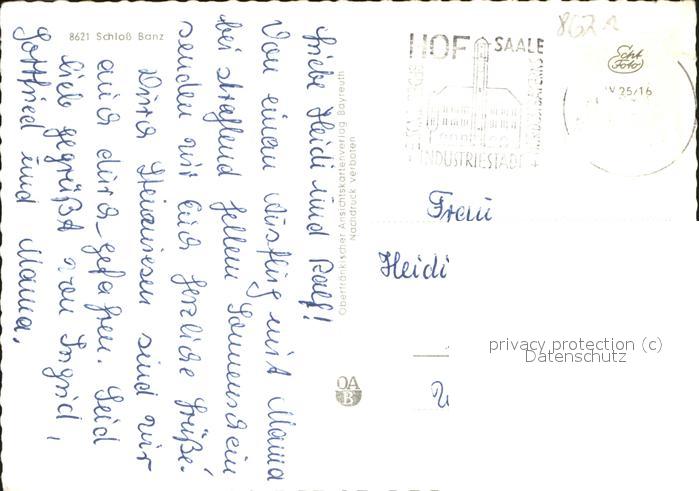 8621 Schloß Banz
Liebe Heidi und Ralf!
Von einem Ausflug mit Mama
bei strahlend hellem Sonnenschein
senden wir Euch herzliche Grüße.
Durch sind wir
auch durch-gefahren. Seid
lieb gegrüßt von Ingrid,
Gottfried und Mama.
Oberfränkischer Ansichtskartenverlag Bayreuth
Nachdruck verboten
OA
B
HOF SAALE
INDUSTRIESTADT
8621
Echt
Foto
IV 25/16
Frau
Heidi
privacy protection (c)
Datenschutz